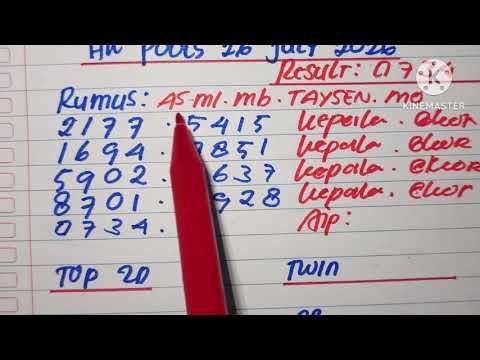 HK POOLS 26 July 2026
Result: 07
KINEMASTER
Rumus: AS.ml.mb.TAYSEN.
2177 . 5415 Kepala . ekor
1694 . 851 Kepala . ekor
5902 . 637 Kepala . ekor
8701 . 928 Kepala . ekor
0734 .
TOP 20 TWIN